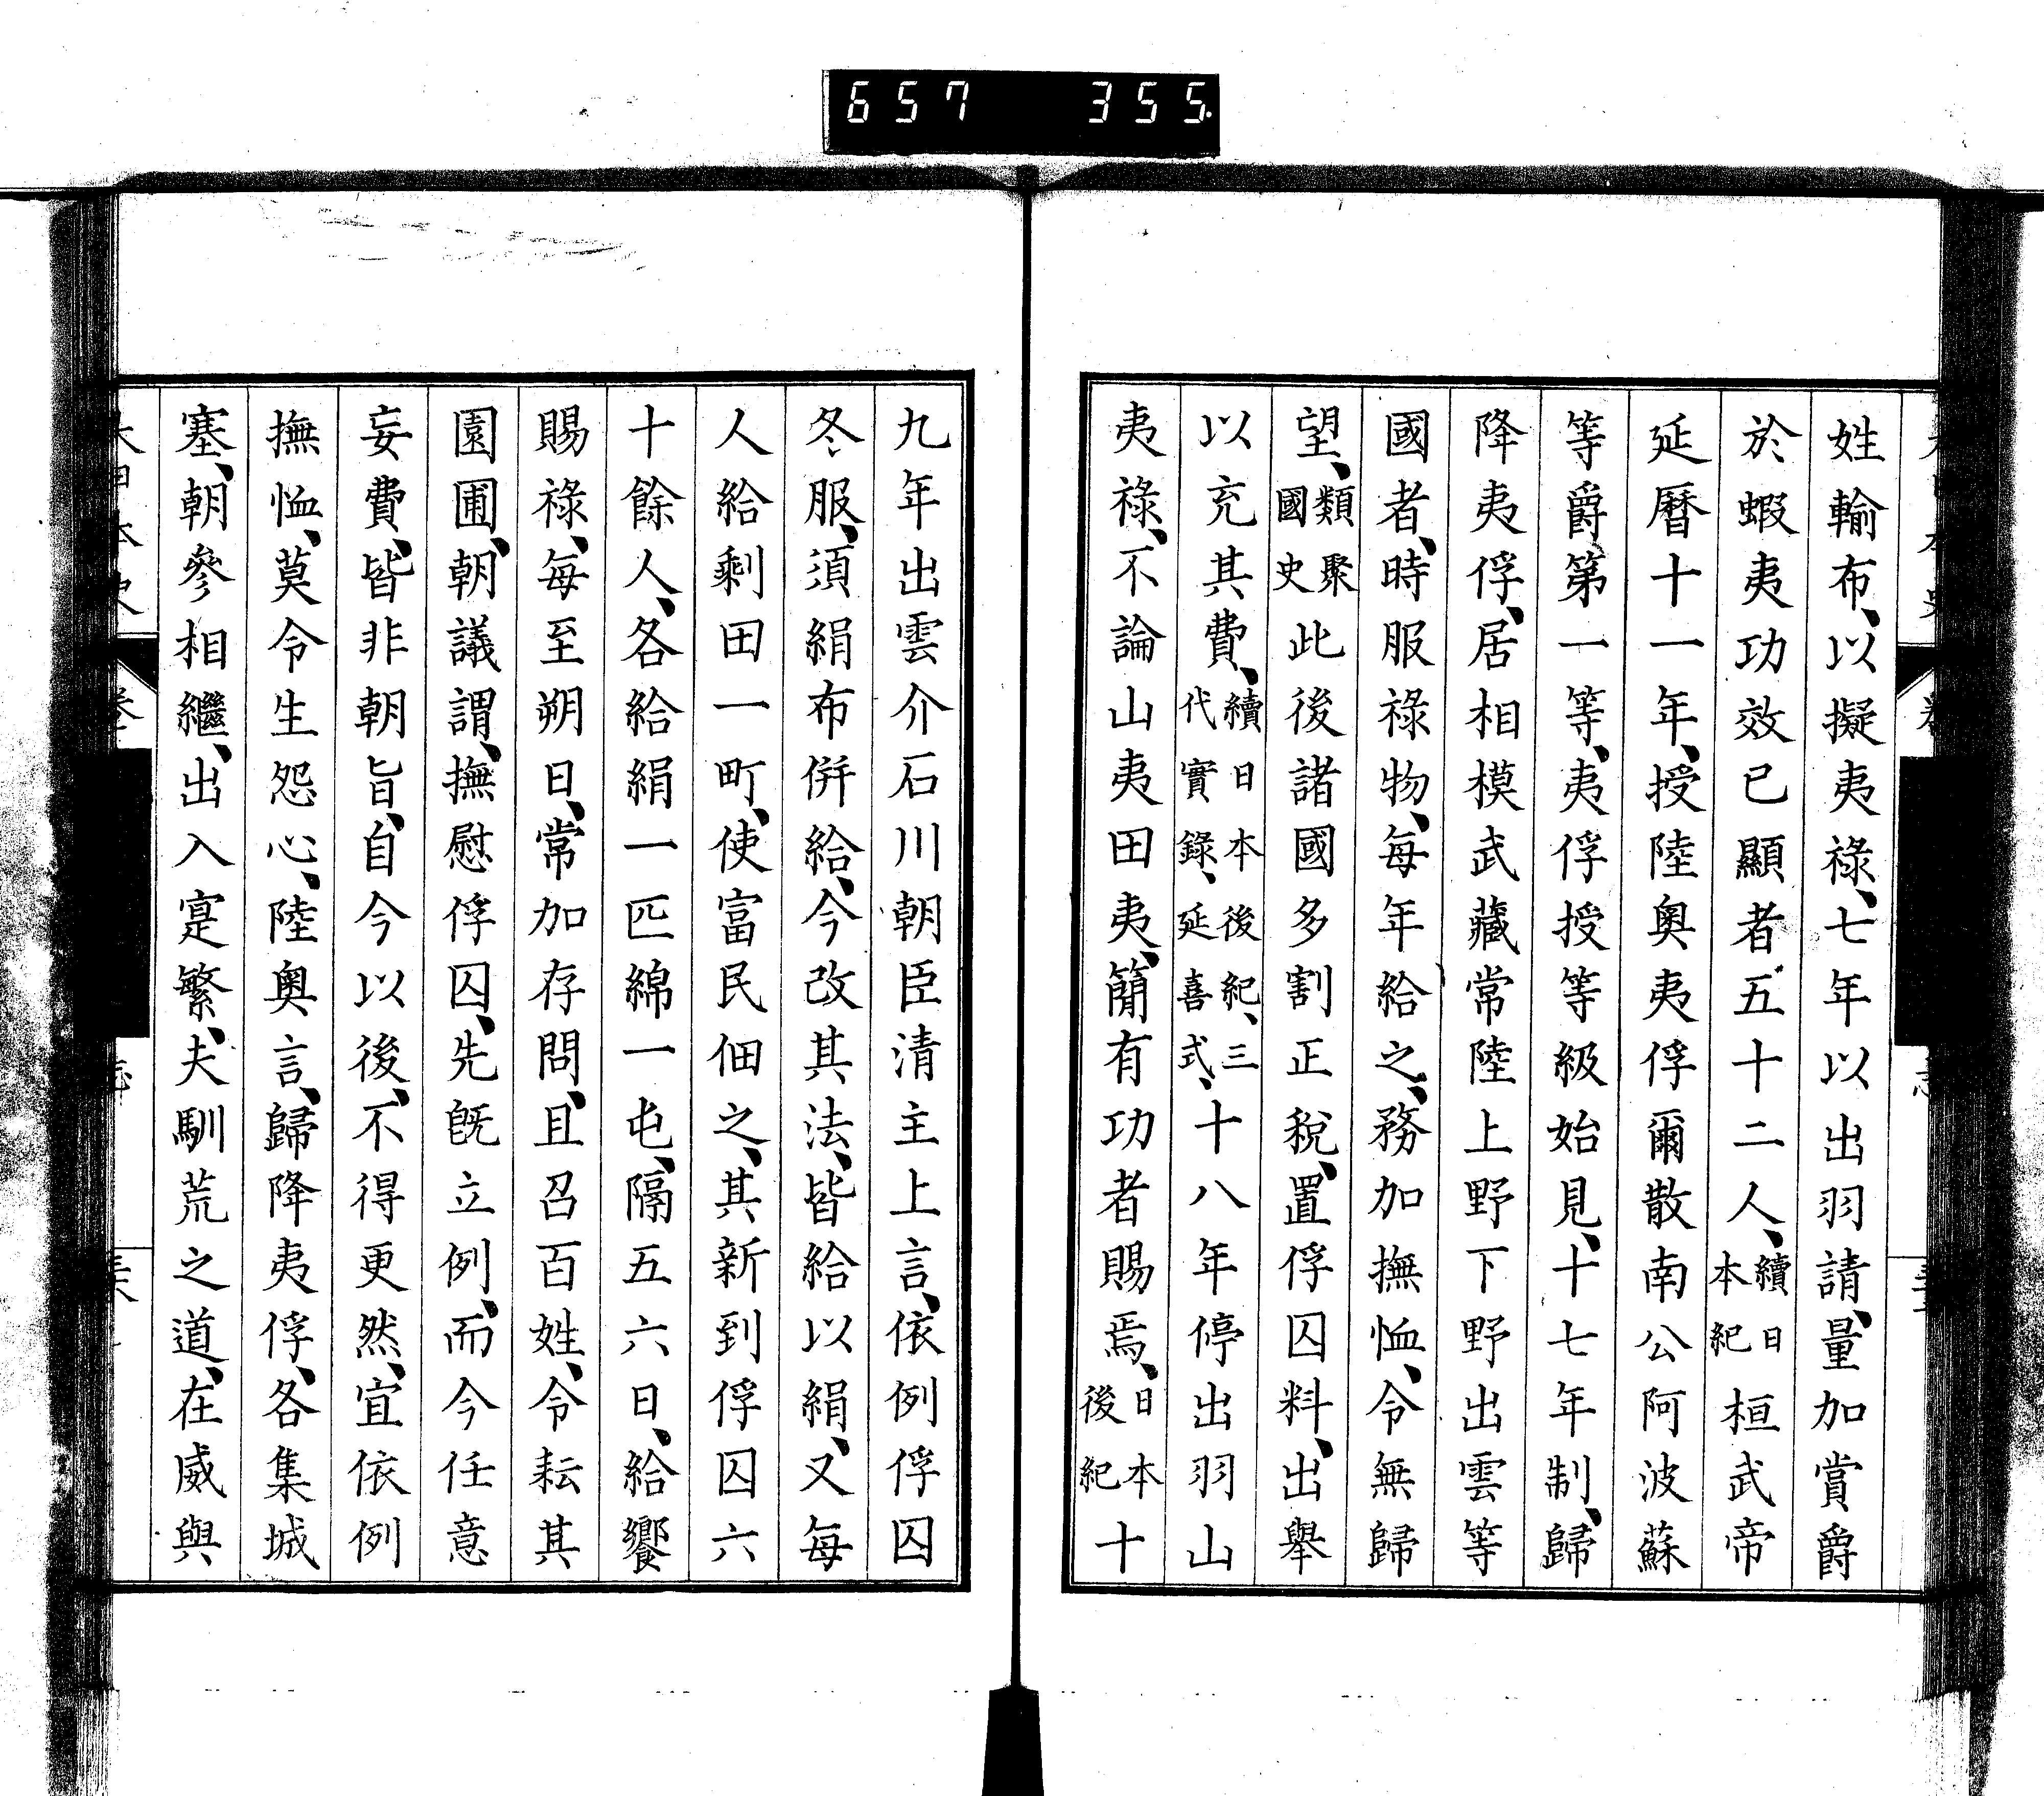 657 355
姓輸布、以擬夷祿、七年以出羽請、量加賞爵
於蝦夷功效已顯者五十二人、續日本紀桓武帝
延曆十一年、授陸奧夷俘爾散南公阿波蘇
等爵第一等、夷俘授等級始見、十七年制、歸
降夷俘、居相模武藏常陸上野下野出雲等
國者、時服祿物、每年給之、務加撫恤、令無歸
望、類聚國史此後諸國多割正稅、置俘囚料、出舉
以充其費、續日本後紀、三代實錄、延喜式、十八年停出羽山
夷祿、不論山夷田夷、簡有功者賜焉、日本後紀十
九年出雲介石川朝臣清主上言、依例俘囚
冬服、須絹布併給、今改其法、皆給以絹、又每
人給剩田一町、使富民佃之、其新到俘囚六
十餘人、各給絹一匹綿一屯、隔五六日、給饗
賜祿、每至朔日、常加存問、且召百姓、令耘其
園圃、朝議謂、撫慰俘囚、先既立例、而今任意
妄費、皆非朝旨、自今以後、不得更然、宜依例
撫恤、莫令生怨心、陸奧言、歸降夷俘、各集城
塞、朝參相繼、出入寔繁、夫馴荒之道、在威與